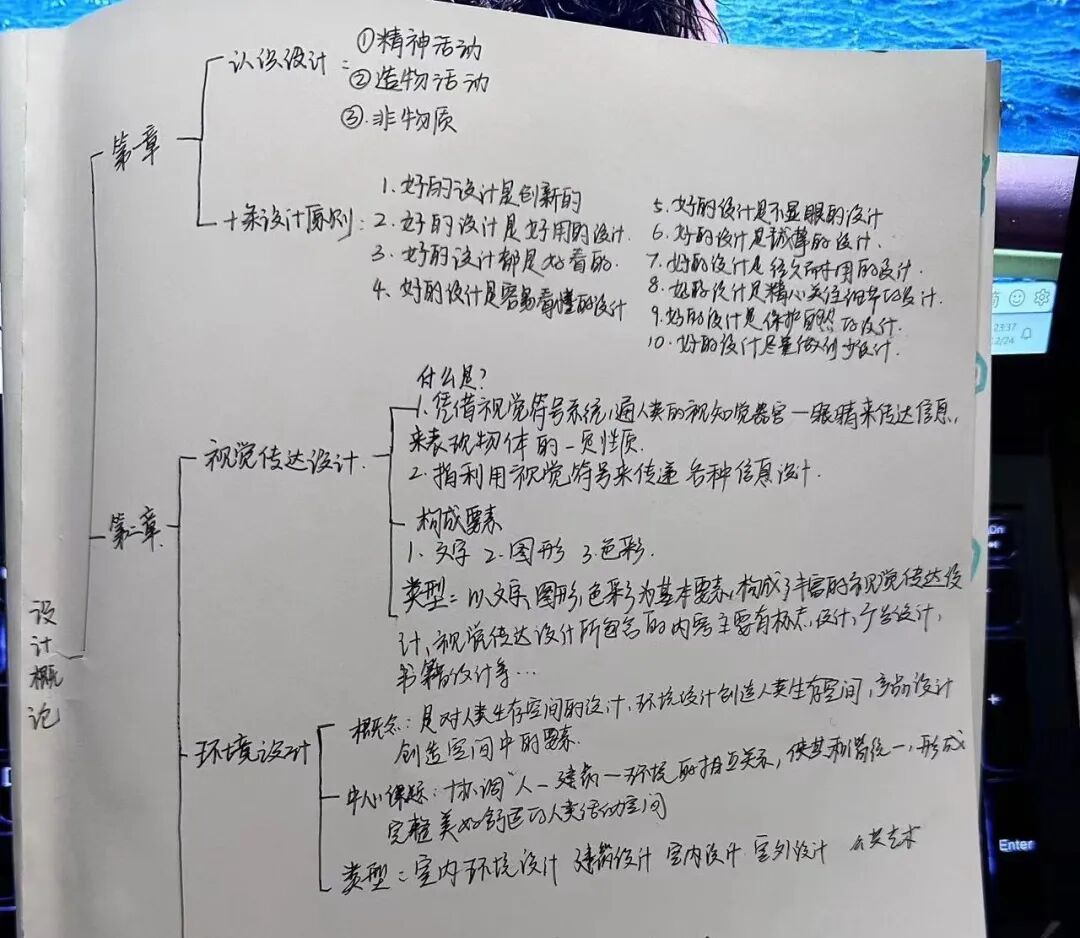 设计概论
第一章
认识设计：
①精神活动
②造物活动
③.非物质
十条设计原则：
1.好的设计是创新的
2.好的设计是好用的设计.
3.好的设计都是好看的.
4.好的设计是容易看懂的设计
5.好的设计是不显眼的设计
6.好的设计是诚实的设计.
7.好的设计是经久耐用的设计.
8.好的设计是精心关注细节的设计.
9.好的设计是保护自然的设计.
10.好的设计尽量做到少设计.
第二章
视觉传达设计.
什么是?
1.凭借视觉符号系统,通人类的视知觉器官一眼睛来传达信息,
来表现物体的一 性质.
2.指利用视觉符号来传递各种信息设计.
构成要素
1.文字 2.图形 3.色彩.
类型：以文字,图形,色彩为基本要素,构成了丰富的视觉传达设
计,视觉传达设计所包含的内容主要有标志,设计,广告设计,
书籍的设计等…
环境设计
概念：是对人类生存空间的设计,环境设计创造人类生存空间,产品设计
创造空间中的要素.
中心课题：协调"人一建筑一环境的相互关系,使其和谐统一,形成
完整美好舒适的人类活动空间
类型：室内环境设计 建筑设计 室内设计 室外设计 公共艺术
23:37
12/24
Enter